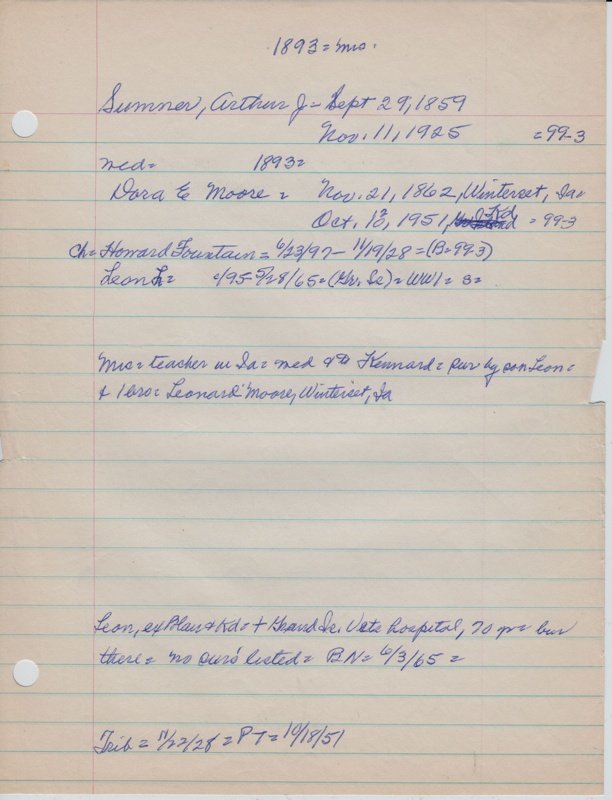 1893 = mrs.
Sumner, Arthur J - Sept 29, 1859
Nov. 11, 1925 = 99-3
med = 1893 =
Dora E Moore = Nov. 21, 1862, Winterset, Ia =
Oct. 12, 1951, Kd = 99-3
Ch = Howard Fountain = 6/23/97 - 11/19/28 = (B = 99-3)
Leon = /95 - 5/28/65 = (Gr. Is) = WW1 = B =
Mrs = teacher in Ia = med & to Kennard = sur by son Leon =
& 1 bro = Leonard Moore, Winterset, Ia
Leon, ex Blair & Kd = + Grand Is. Vets hospital, 70 yr = bur
there = no sur's listed = BN = 6/3/65 =
Trib = 11/22/28 = PT = 10/18/51